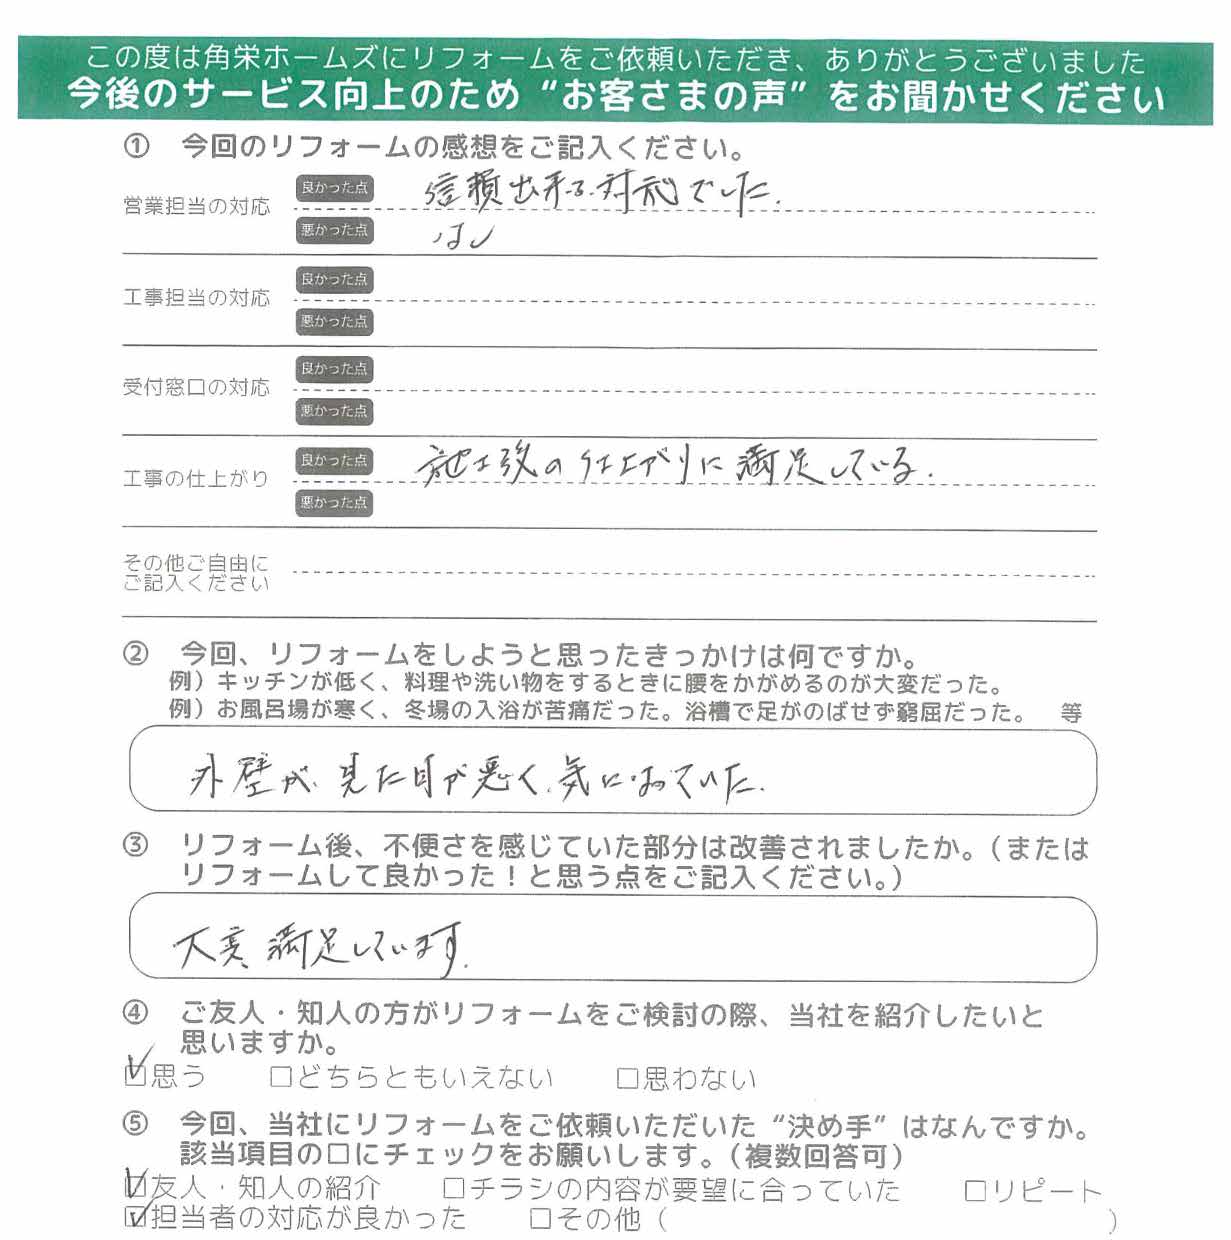 この度は角栄ホームズにリフォームをご依頼いただき、ありがとうございました
今後のサービス向上のため“お客さまの声”をお聞かせください
① 今回のリフォームの感想をご記入ください。
営業担当の対応
良かった点 信頼出来る対応でした.
悪かった点 なし
工事担当の対応
良かった点
悪かった点
受付窓口の対応
良かった点
悪かった点
工事の仕上がり
良かった点 施工後の仕上がりに満足している.
悪かった点
その他ご自由に
ご記入ください
② 今回、リフォームをしようと思ったきっかけは何ですか。
例）キッチンが低く、料理や洗い物をするときに腰をかがめるのが大変だった。
例）お風呂場が寒く、冬場の入浴が苦痛だった。浴槽で足がのばせず窮屈だった。 等
外壁が、見た目が悪く、気になっていた.
③ リフォーム後、不便さを感じていた部分は改善されましたか。（または
リフォームして良かった！と思う点をご記入ください。）
大変満足しています.
④ ご友人・知人の方がリフォームをご検討の際、当社を紹介したいと
思いますか。
☑思う □どちらともいえない □思わない
⑤ 今回、当社にリフォームをご依頼いただいた“決め手”はなんですか。
該当項目の□にチェックをお願いします。（複数回答可）
☑友人・知人の紹介 □チラシの内容が要望に合っていた □リピート
☑担当者の対応が良かった □その他（ ）